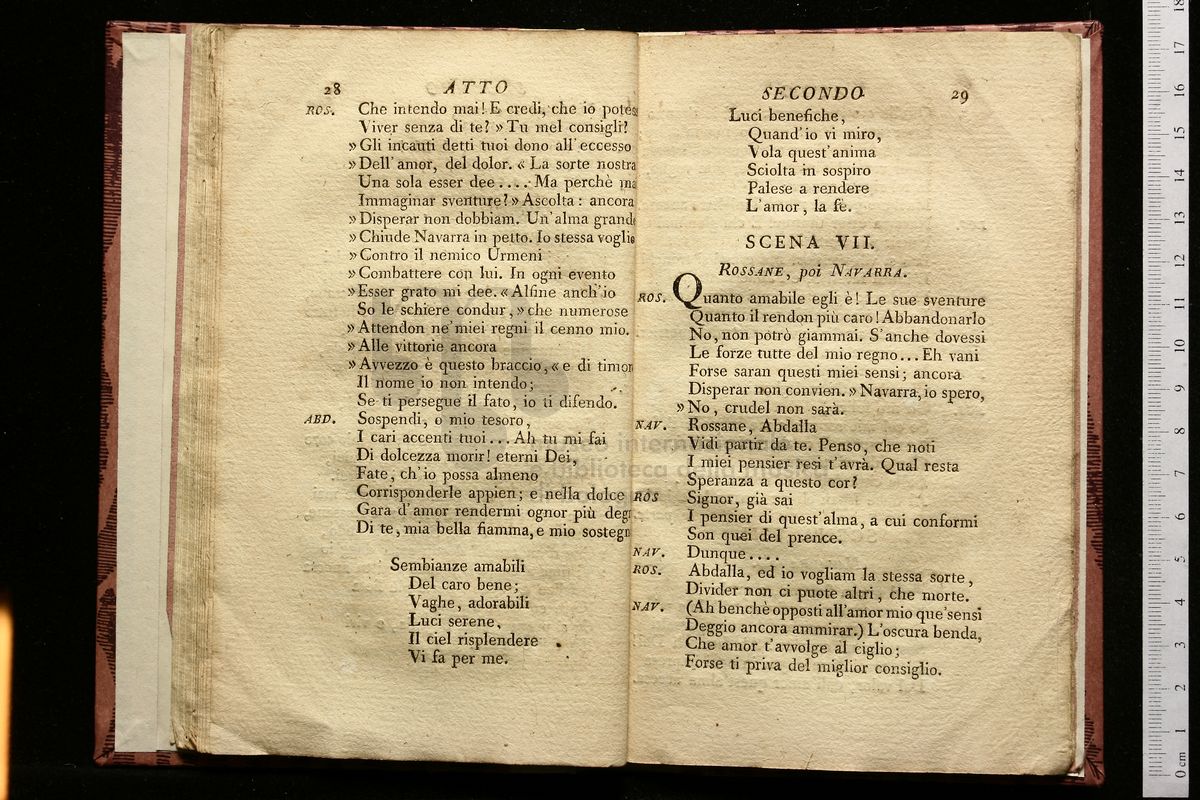 28 ATTO
ROS. Che intendo mai! E credi, che io potes
Viver senza di te? » Tu mel consigli?
» Gli incauti detti tuoi dono all' eccesso
» Dell' amor, del dolor. « La sorte nostra
Una sola esser dee .... Ma perchè ma
Immaginar sventure? » Ascolta: ancora
» Disperar non dobbiam. Un' alma grande
» Chiude Navarra in petto. Io stessa voglio
» Contro il nemico Urmeni
» Combattere con lui. In ogni evento
» Esser grato mi dee. « Alfine anch' io
So le schiere condur, » che numerose
» Attendon ne' miei regni il cenno mio.
» Alle vittorie ancora
» Avvezzo è questo braccio, « e di timor
Il nome io non intendo;
Se ti persegue il fato, io ti difendo.
ABD. Sospendi, o mio tesoro,
I cari accenti tuoi... Ah tu mi fai
Di dolcezza morir! eterni Dei,
Fate, ch' io possa almeno
Corrisponderle appien; e nella dolce
Gara d' amor rendermi ognor più deg
Di te, mia bella fiamma, e mio sostegn
Sembianze amabili
Del caro bene;
Vaghe, adorabili
Luci serene,
Il ciel risplendere
Vi fa per me.
SECONDO 29
Luci benefiche,
Quand' io vi miro,
Vola quest' anima
Sciolta in sospiro
Palese a rendere
L' amor, la fè.
SCENA VII.
ROSSANE, poi NAVARRA.
ROS. Quanto amabile egli è! Le sue sventure
Quanto il rendon più caro! Abbandonarlo
No, non potrò giammai. S' anche dovessi
Le forze tutte del mio regno... Eh vani
Forse saran questi miei sensi; ancora
Disperar non convien. » Navarra, io spero,
» No, crudel non sarà.
NAV. Rossane, Abdalla
Vidi partir da te. Penso, che noti
I miei pensier resi t' avrà. Qual resta
Speranza a questo cor?
ROS Signor, già sai
I pensier di quest' alma, a cui conformi
Son quei del prence.
NAV. Dunque ....
ROS. Abdalla, ed io vogliam la stessa sorte,
Divider non ci puote altri, che morte.
NAV. (Ah benchè opposti all' amor mio que' sensi
Deggio ancora ammirar.) L' oscura benda,
Che amor t' avvolge al ciglio;
Forse ti priva del miglior consiglio.